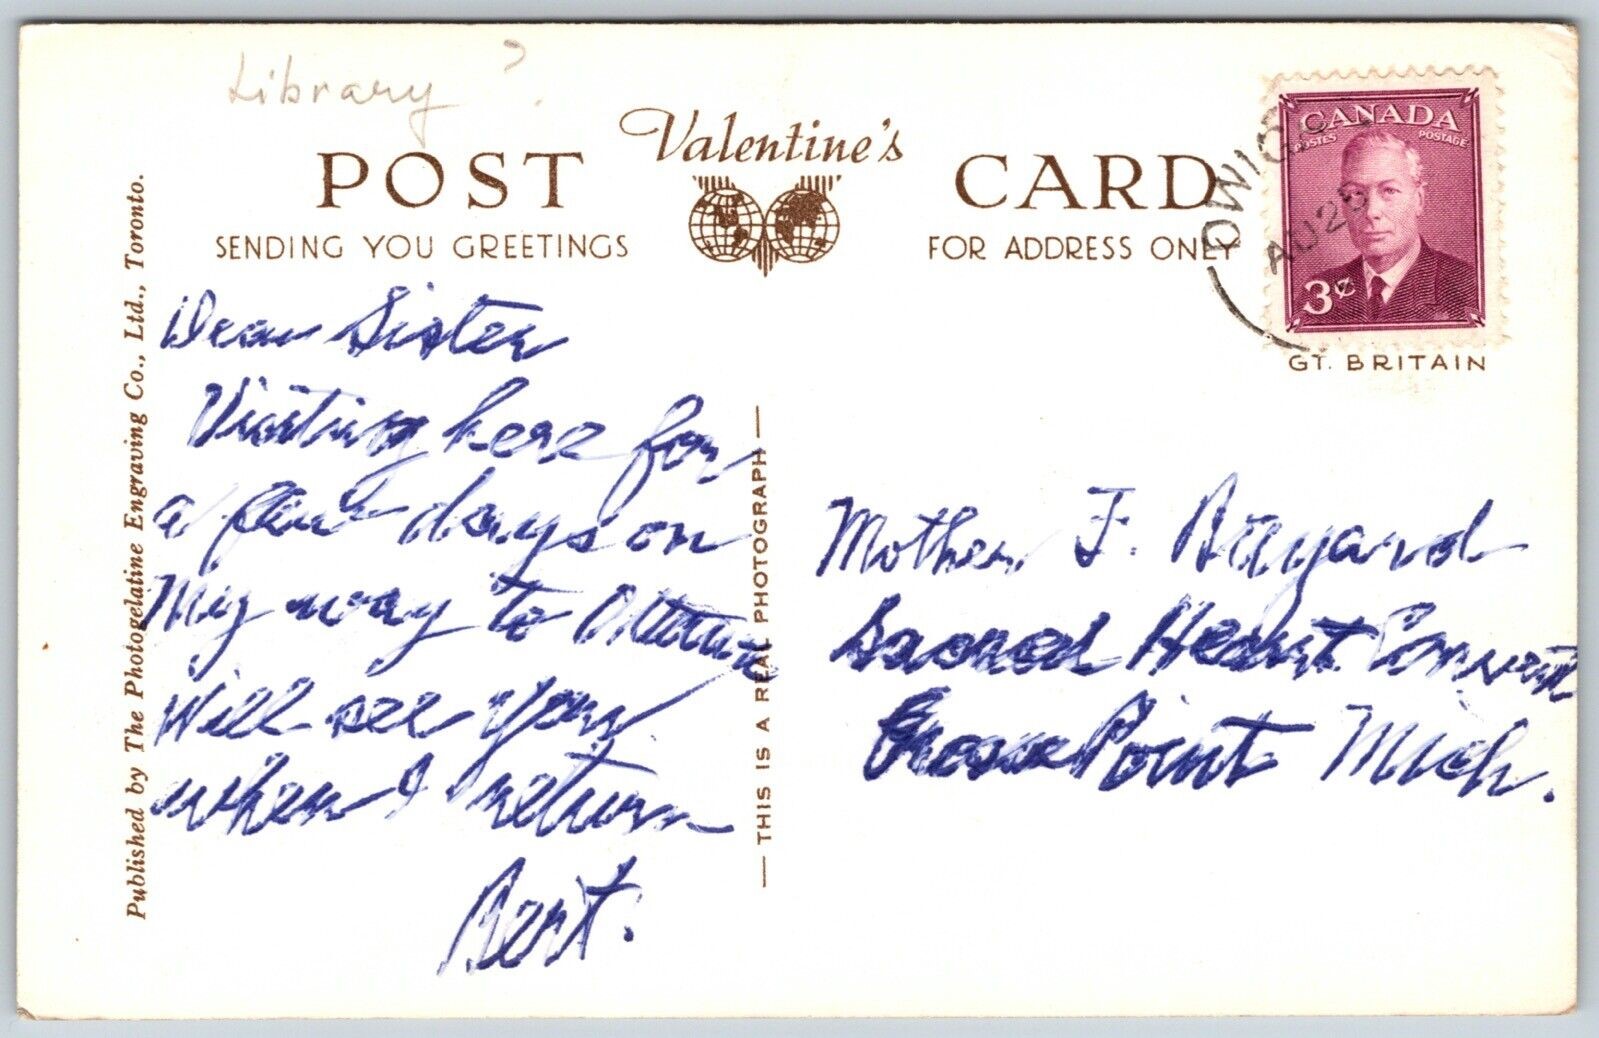 Library ?
Valentine's
POST CARD
SENDING YOU GREETINGS
FOR ADDRESS ONLY
CANADA
POSTES POSTAGE
3¢
AU 25
GT. BRITAIN
Published by The Photogelatine Engraving Co., Ltd., Toronto.
Dear Sister
Visiting here for
a few days on
My way to
Will see you
when I return
Bert.
THIS IS A REAL PHOTOGRAPH
Mother F. Bayard
Sacred Heart Convent
Grosse Point Mich.